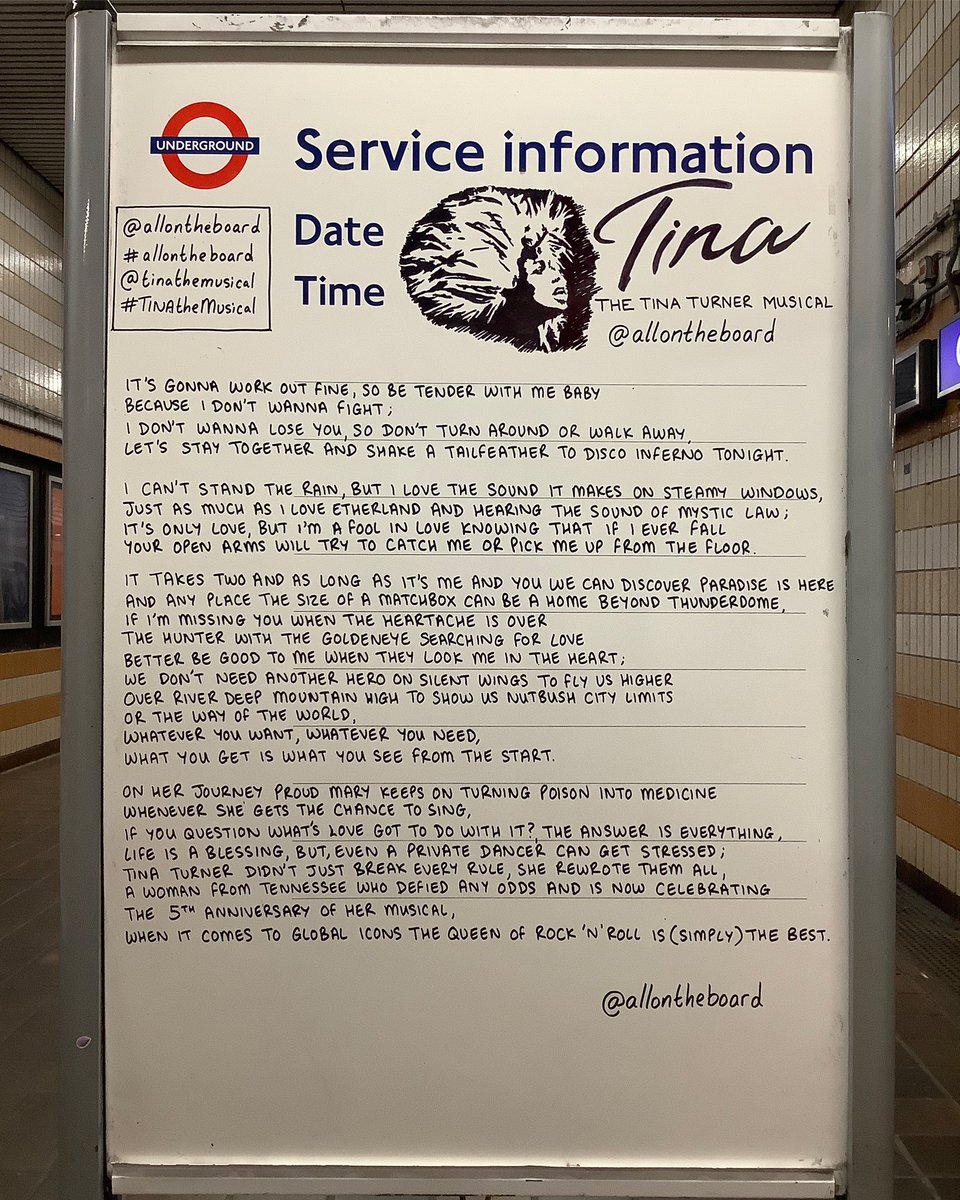 UNDERGROUND
Service information
@allontheboard
#allontheboard
@tinathemusical
#TINAtheMusical
Date
Time
Tina
THE TINA TURNER MUSICAL
@allontheboard
IT'S GONNA WORK OUT FINE, SO BE TENDER WITH ME BABY
BECAUSE I DON'T WANNA FIGHT;
I DON'T WANNA LOSE YOU, SO DON'T TURN AROUND OR WALK AWAY,
LET'S STAY TOGETHER AND SHAKE A TAILFEATHER TO DISCO INFERNO TONIGHT.
I CAN'T STAND THE RAIN, BUT I LOVE THE SOUND IT MAKES ON STEAMY WINDOWS,
JUST AS MUCH AS I LOVE ETHERLAND AND HEARING THE SOUND OF MYSTIC LAW;
IT'S ONLY LOVE, BUT I'M A FOOL IN LOVE KNOWING THAT IF I EVER FALL
YOUR OPEN ARMS WILL TRY TO CATCH ME OR PICK ME UP FROM THE FLOOR.
IT TAKES TWO AND AS LONG AS IT'S ME AND YOU WE CAN DISCOVER PARADISE IS HERE
AND ANY PLACE THE SIZE OF A MATCHBOX CAN BE A HOME BEYOND THUNDERDOME,
IF I'M MISSING YOU WHEN THE HEARTACHE IS OVER
THE HUNTER WITH THE GOLDENEYE SEARCHING FOR LOVE
BETTER BE GOOD TO ME WHEN THEY LOOK ME IN THE HEART;
WE DON'T NEED ANOTHER HERO ON SILENT WINGS TO FLY US HIGHER
OVER RIVER DEEP MOUNTAIN HIGH TO SHOW US NUTBUSH CITY LIMITS
OR THE WAY OF THE WORLD,
WHATEVER YOU WANT, WHATEVER YOU NEED,
WHAT YOU GET IS WHAT YOU SEE FROM THE START.
ON HER JOURNEY PROUD MARY KEEPS ON TURNING POISON INTO MEDICINE
WHENEVER SHE GETS THE CHANCE TO SING,
IF YOU QUESTION WHAT'S LOVE GOT TO DO WITH IT? THE ANSWER IS EVERYTHING,
LIFE IS A BLESSING, BUT, EVEN A PRIVATE DANCER CAN GET STRESSED;
TINA TURNER DIDN'T JUST BREAK EVERY RULE, SHE REWROTE THEM ALL,
A WOMAN FROM TENNESSEE WHO DEFIED ANY ODDS AND IS NOW CELEBRATING
THE 5TH ANNIVERSARY OF HER MUSICAL,
WHEN IT COMES TO GLOBAL ICONS THE QUEEN OF ROCK 'N' ROLL IS (SIMPLY) THE BEST.
@allontheboard